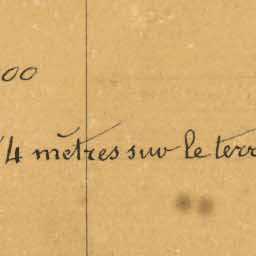 00
4 mètres sur le terr